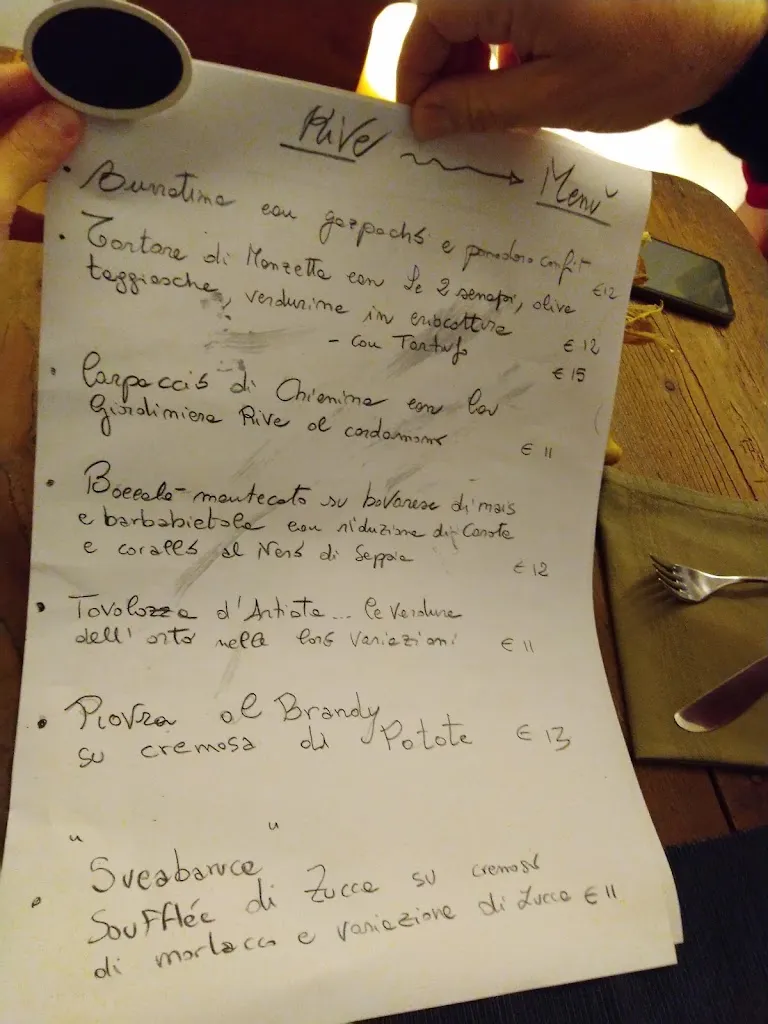 Rive Menù
Burratina con gazpacho e pomodoro confit €12
Tartare di Manzetta con le 2 senapi, olive
taggiasche, verdurine in osmocottura €12
- con Tartufo €15
Carpaccio di Chianina con la
Giardiniera Rive al cardamomo €11
Baccalà mantecato su bavarese di mais
e barbabietola con riduzione di Carote
e corallo al Nero di Seppia €12
Tavolozza d'Artista... le verdure
dell'orto nelle loro variazioni €11
Piovra al Brandy
su cremosa di Patate €13
"Sveabaruce"
Soufflée di Zucca su cremoso
di morlacco e variazione di Zucca €11